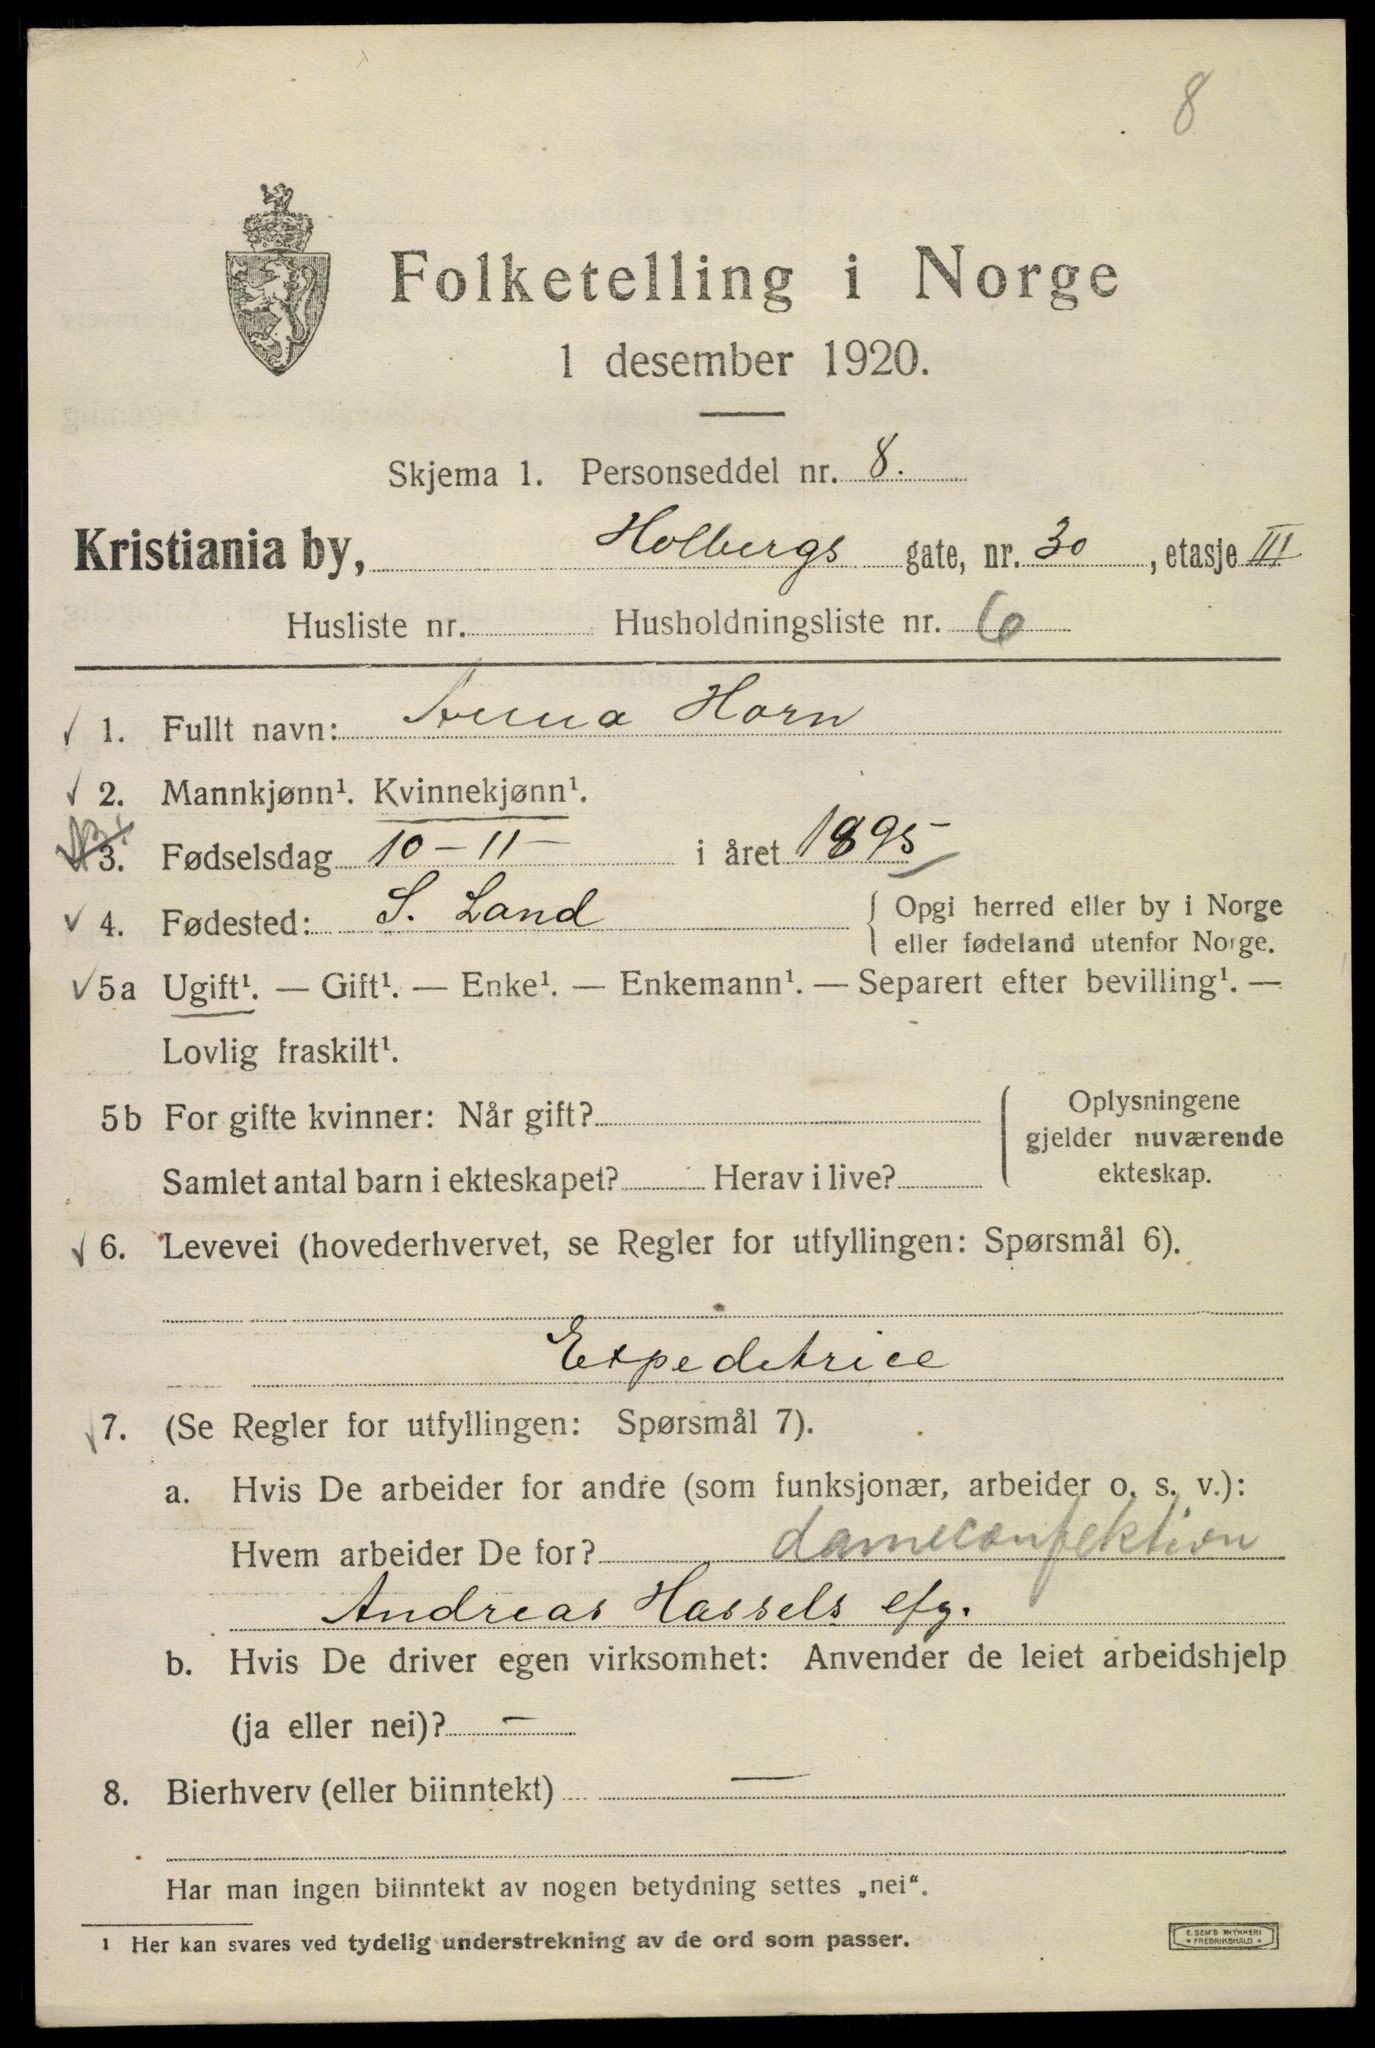 8
Folketelling i Norge
1 desember 1920.
Skjema 1. Personseddel nr. 8.
Kristiania by, Holbergs gate, nr. 30, etasje III
Husliste nr. Husholdningsliste nr. 6
1. Fullt navn: Anna Horn
2. Mannkjønn¹. Kvinnekjønn¹.
3. Fødselsdag 10-11- i året 1895
4. Fødested: S. Land
Opgi herred eller by i Norge
eller fødeland utenfor Norge.
5a Ugift¹. — Gift¹. — Enke¹. — Enkemann¹. — Separert efter bevilling¹. —
Lovlig fraskilt¹.
5b For gifte kvinner: Når gift?
Samlet antal barn i ekteskapet? Herav i live?
Oplysningene
gjelder nuværende
ekteskap.
6. Levevei (hovederhvervet, se Regler for utfyllingen: Spørsmål 6).
Expeditrice
7. (Se Regler for utfyllingen: Spørsmål 7).
a. Hvis De arbeider for andre (som funksjonær, arbeider o. s. v.):
Hvem arbeider De for? dameconfektion
Andreas Hassels efg.
b. Hvis De driver egen virksomhet: Anvender de leiet arbeidshjelp
(ja eller nei)? —
8. Bierhverv (eller biinntekt) —
Har man ingen biinntekt av nogen betydning settes „nei“.
¹ Her kan svares ved tydelig understrekning av de ord som passer.
E. SEM'S TRYKKERI
* FREDRIKSHALD *